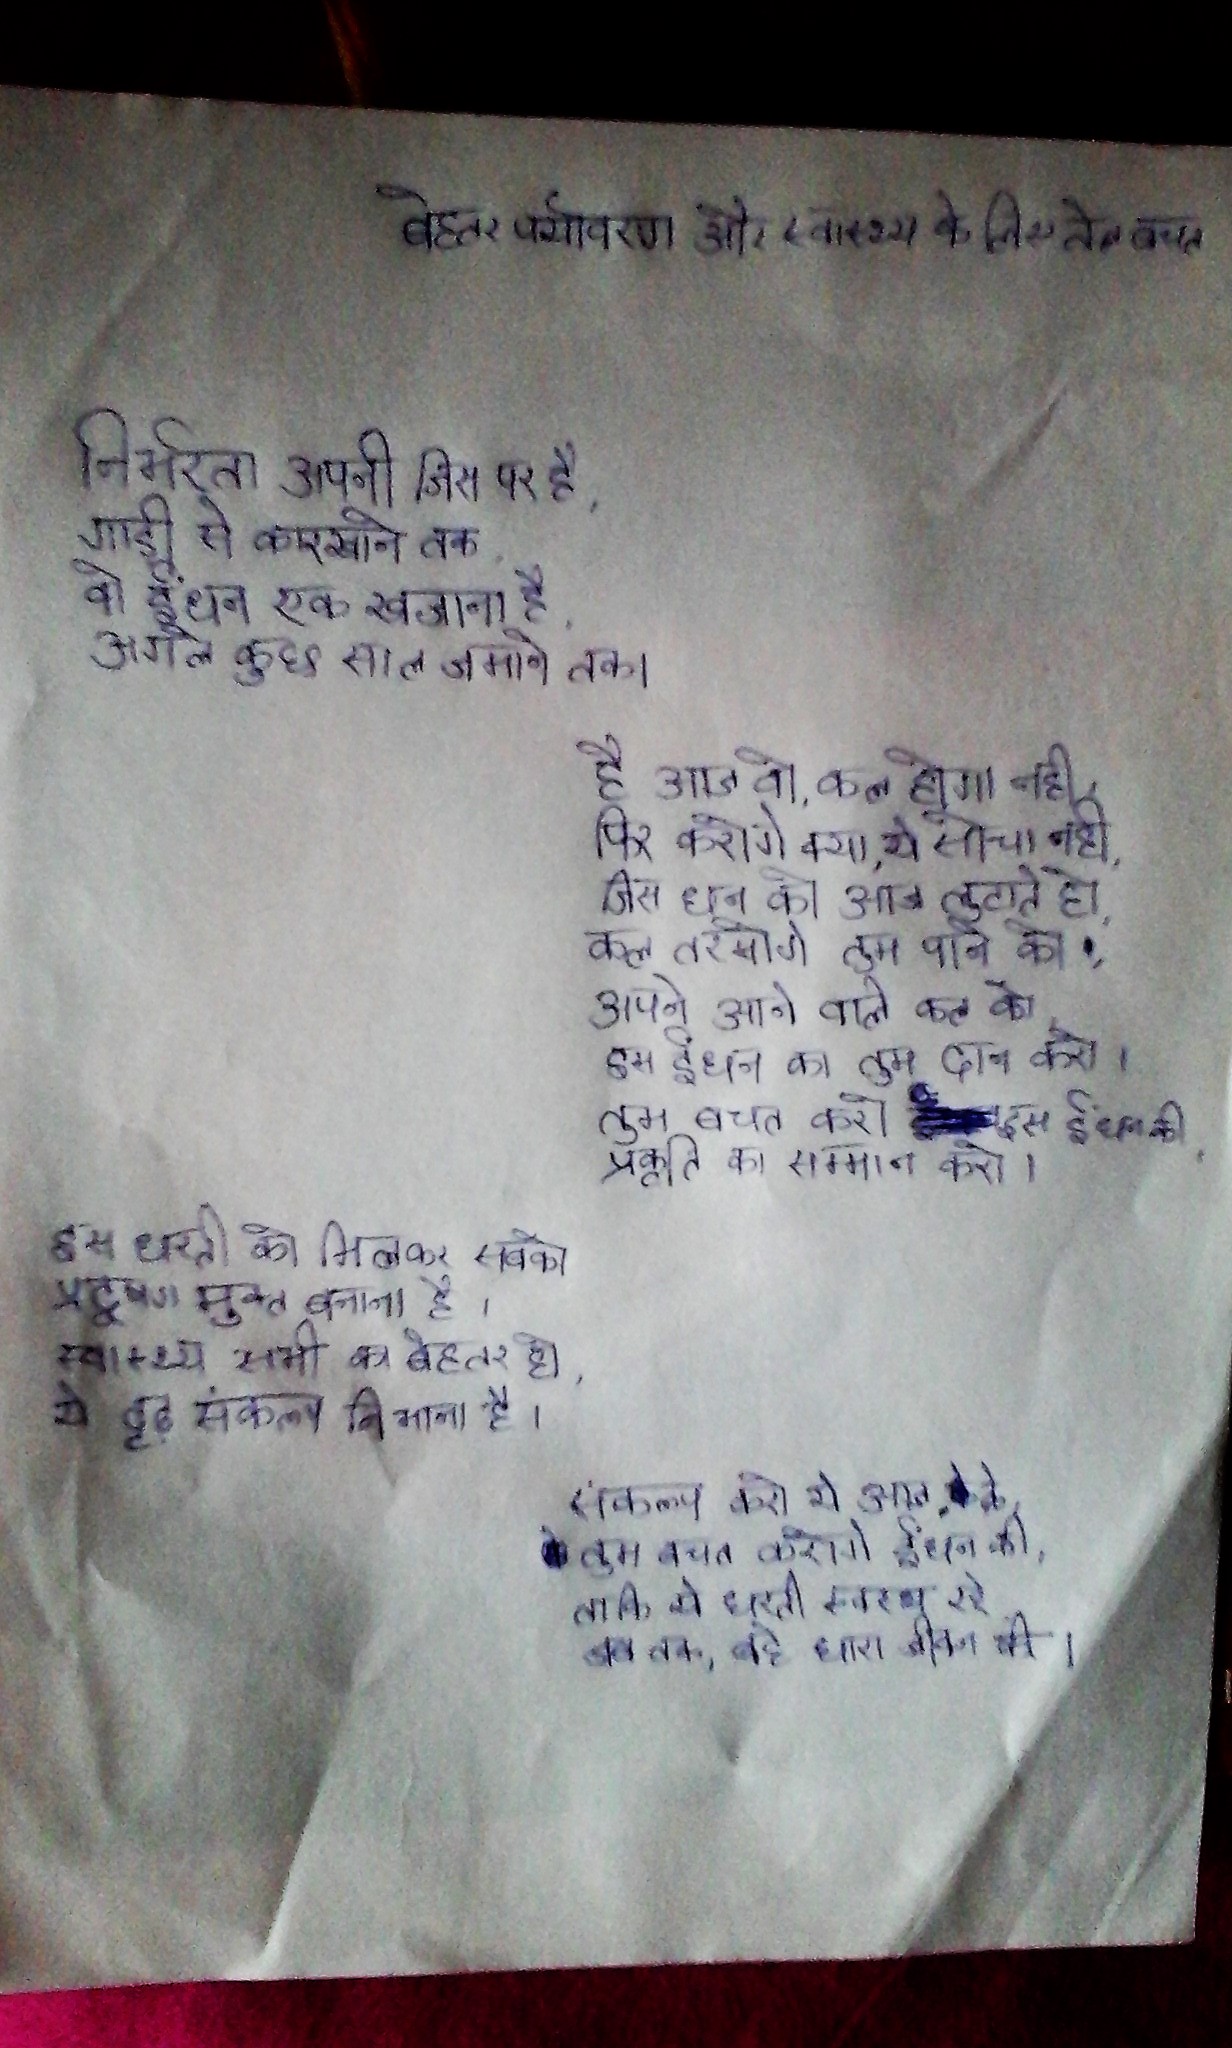 बेहतर पर्यावरण और स्वास्थ्य के लिए तेल बचत
निर्भरता अपनी जिस पर है,
गाड़ी से कारखाने तक,
वो ईंधन एक खजाना है,
अगले कुछ साल जमाने तक।
है आज वो, कल होगा नही,
फिर करोगे क्या, ये सोचा नही,
जिस धन को आज लुटाते हो,
कल तरसोगे तुम पाने को,
अपने आने वाले कल को,
इस ईंधन का तुम दान करो।
तुम बचत करो इस ईंधन की,
प्रकृति का सम्मान करो।
इस धरती को मिलकर सबको
प्रदूषण मुक्त बनाना है।
स्वास्थ्य सभी का बेहतर हो,
ये दृढ़ संकल्प निभाना है।
संकल्प करो ये आज, के,
तुम बचत करोगे ईंधन की,
ताकि ये धरती स्वस्थ रहे
तक, बहे धारा जीवन की।